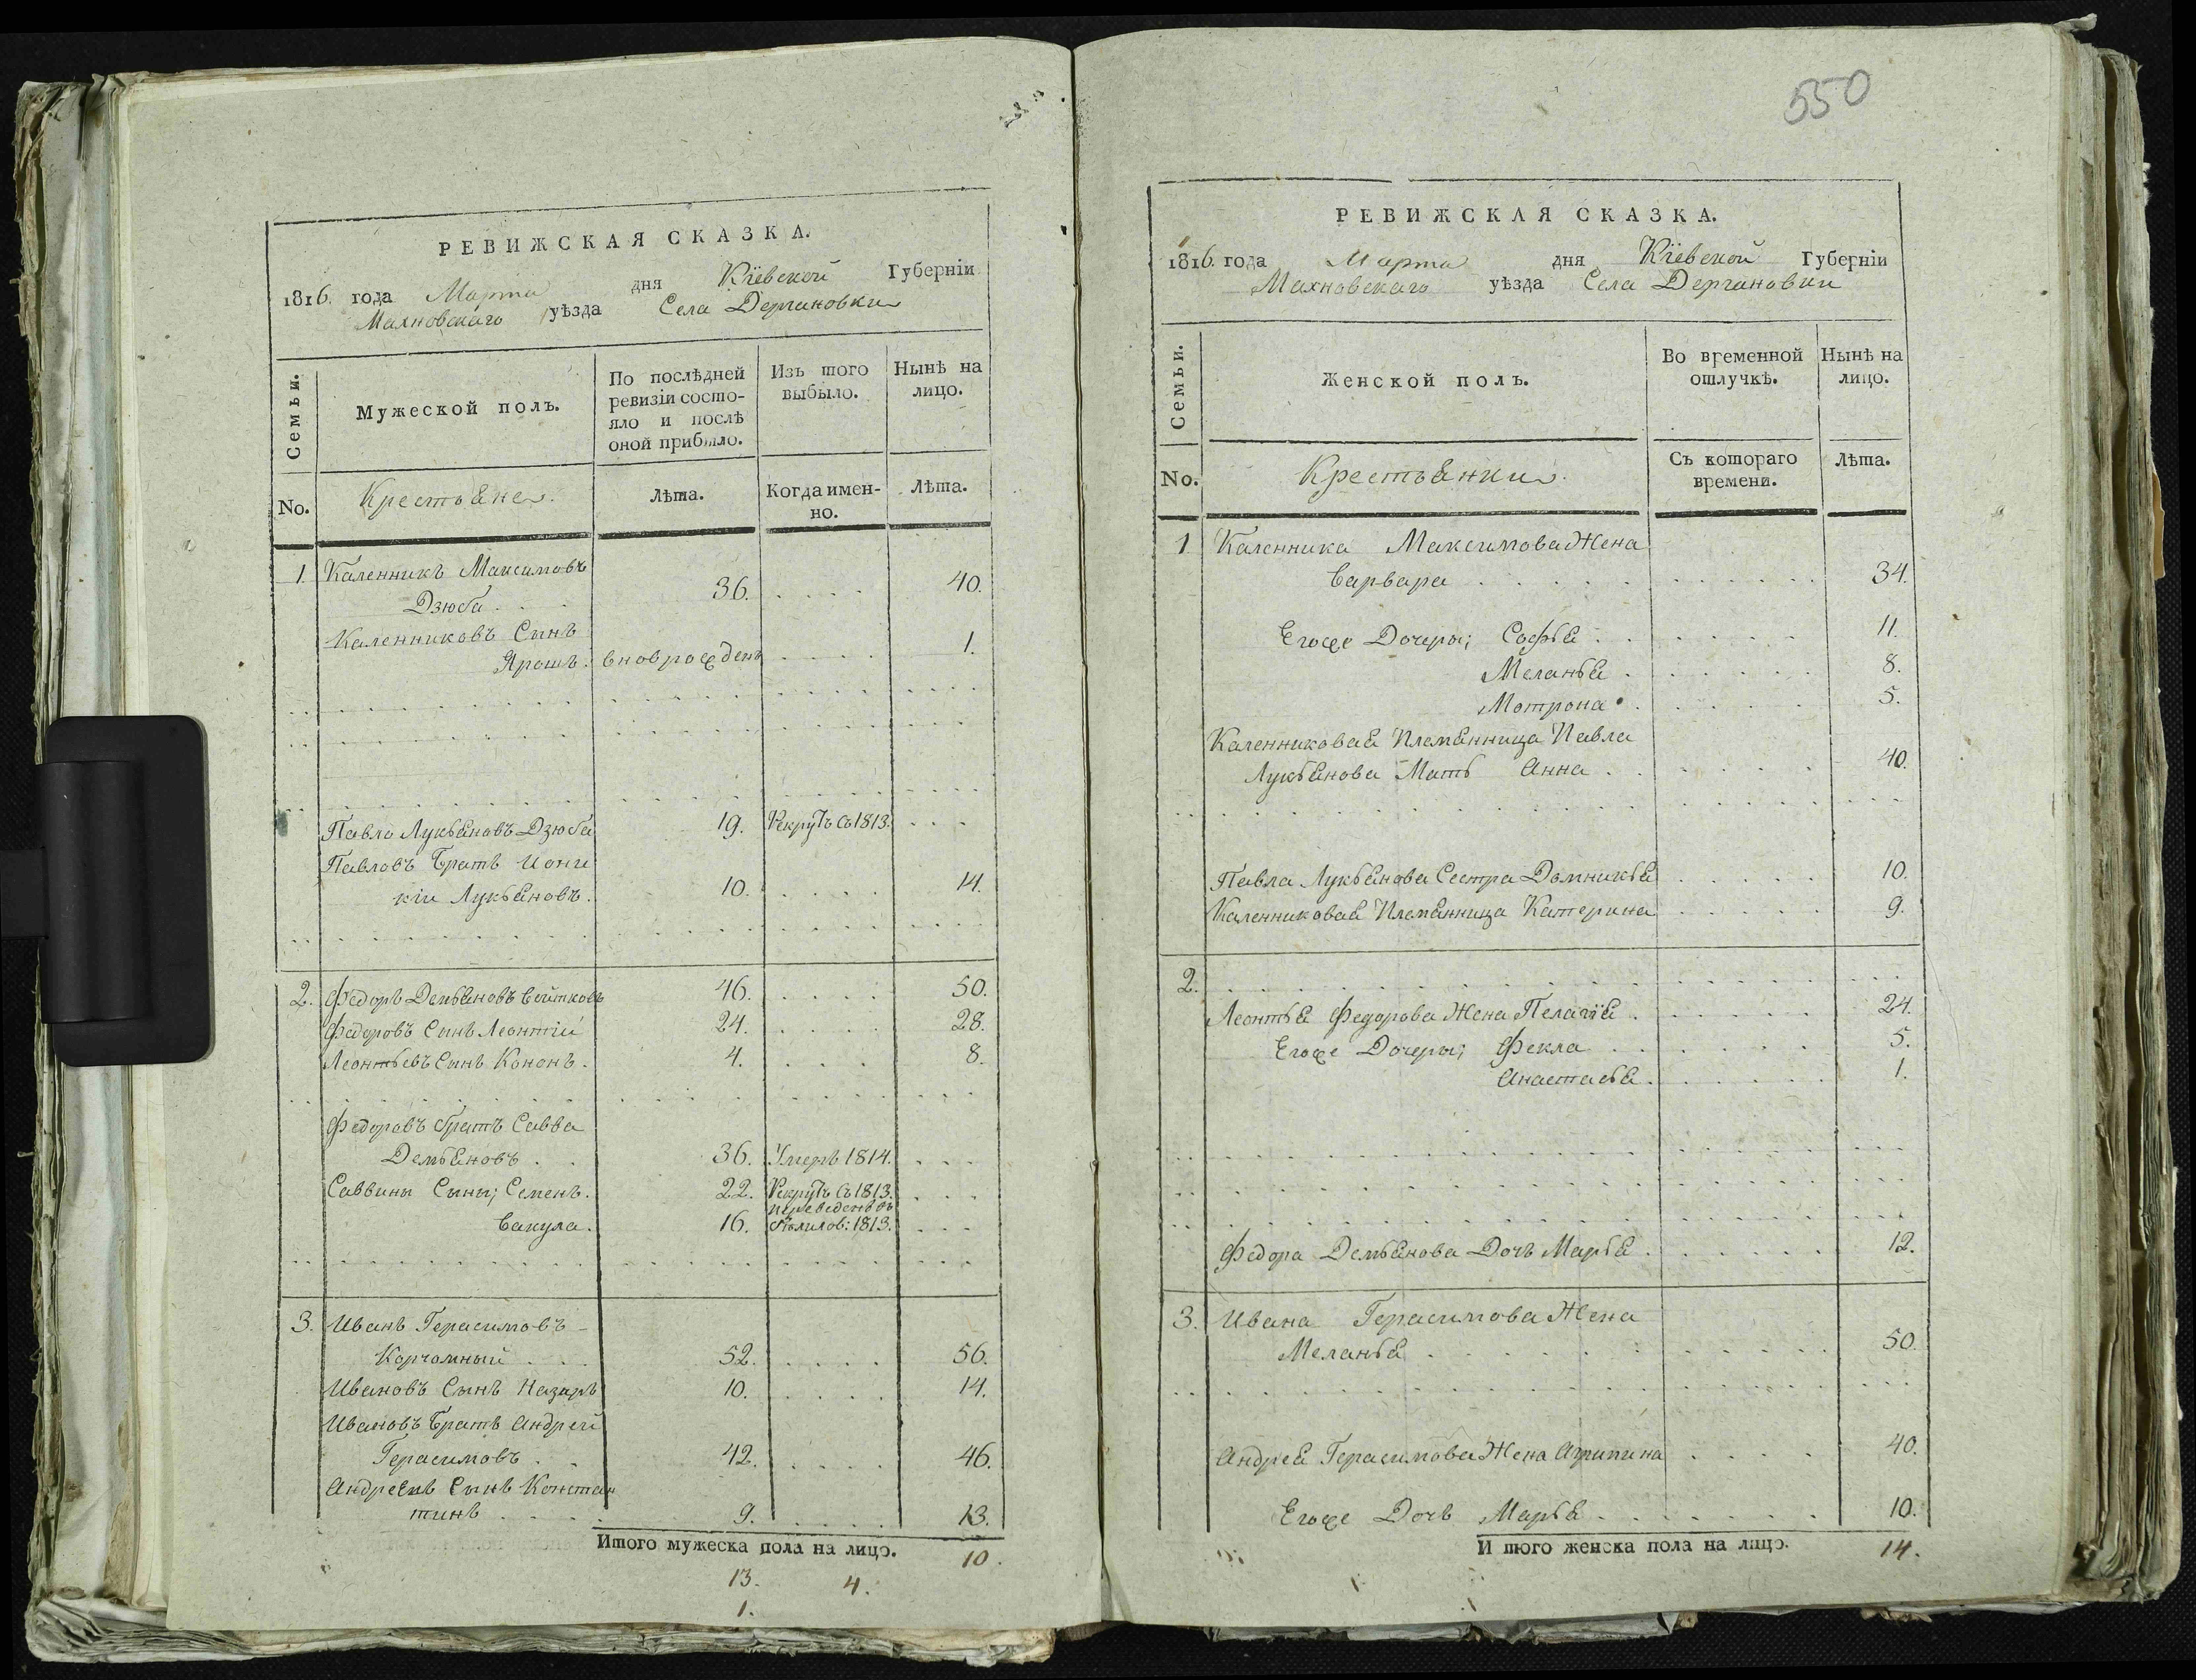 РЕВИЖСКАЯ СКАЗКА.
1816. года Марта дня Кіевской Губерніи
Махновскаго уѣзда Села Дергановки
Семьи.
Мужеской полъ.
По послѣдней ревизіи состо-
яло и послѣ оной прибыло.
Изъ того выбыло.
Нынѣ на лицо.
No.
Крестьяне.
Лѣта.
Когда имен-
но.
Лѣта.
1. Каленникъ Максимовъ
Дзюба . . . 36. . . . . 40.
Каленниковъ Сынъ
Ярошъ. вноврожденъ . . . . 1.
Павло Лукьяновъ Дзюба 19. Рекрутъ съ 1813. . . .
Павловъ Братъ Иони
кіи Лукьяновъ. 10. . . . . 14.
2. Федоръ Демьяновъ Войтковъ 46. . . . . 50.
Федоровъ Сынъ Леонтій 24. . . . . 28.
Леонтьевъ Сынъ Кононъ. 4. . . . 8.
Федоровъ братъ Савва
Демьяновъ . . 36. Умеръ 1814. . . .
Саввины Сыны; Семенъ. 22. Рекрутъ съ 1813. . . .
Вакула. 16. переведенъ въ
1813. . . .
3. Иванъ Герасимовъ
Корчомный . . . 52. . . . . 56.
Ивановъ Сынъ Назаръ 10. . . . . 14.
Ивановъ Братъ Андрей
Герасимовъ . . 42. . . . . 46.
Андреевъ Сынъ Констан
тинъ . . . . 9. . . . . 13.
Итого мужеска пола на лицо. 10.
13. 4.
1.
550
РЕВИЖСКАЯ СКАЗКА.
1816. года Марта дня Кіевской Губерніи
Махновскаго уѣзда Села Дергановки
Семьи.
Женской полъ.
Во временной отлучкѣ.
Нынѣ на лицо.
No.
Крестьянки.
Съ котораго времени.
Лѣта.
1 Каленника Максимова Жена
Варвара . . . . . 34.
Егоже Дочеры; Софья . . 11.
Меланья . 8.
Мотрона . 5.
Каленниковая Племянница Павла
Лукьянова Мать Анна . . 40.
Павла Лукьянова Сестра Домникья 10.
Каленниковая Племянница Катерина 9.
2.
Леонтья Федорова Жена Пелагія . 24.
Егоже Дочеры; Фекла . . 5.
Анастасья. 1.
Федора Демьянова Дочь Марья . 12.
3. Ивана Герасимова Жена
Меланья . . . . . 50.
Андрея Герасимова Жена Агрипина 40.
Егоже Дочь Марья . . . 10.
Итого женска пола на лицо. 14.